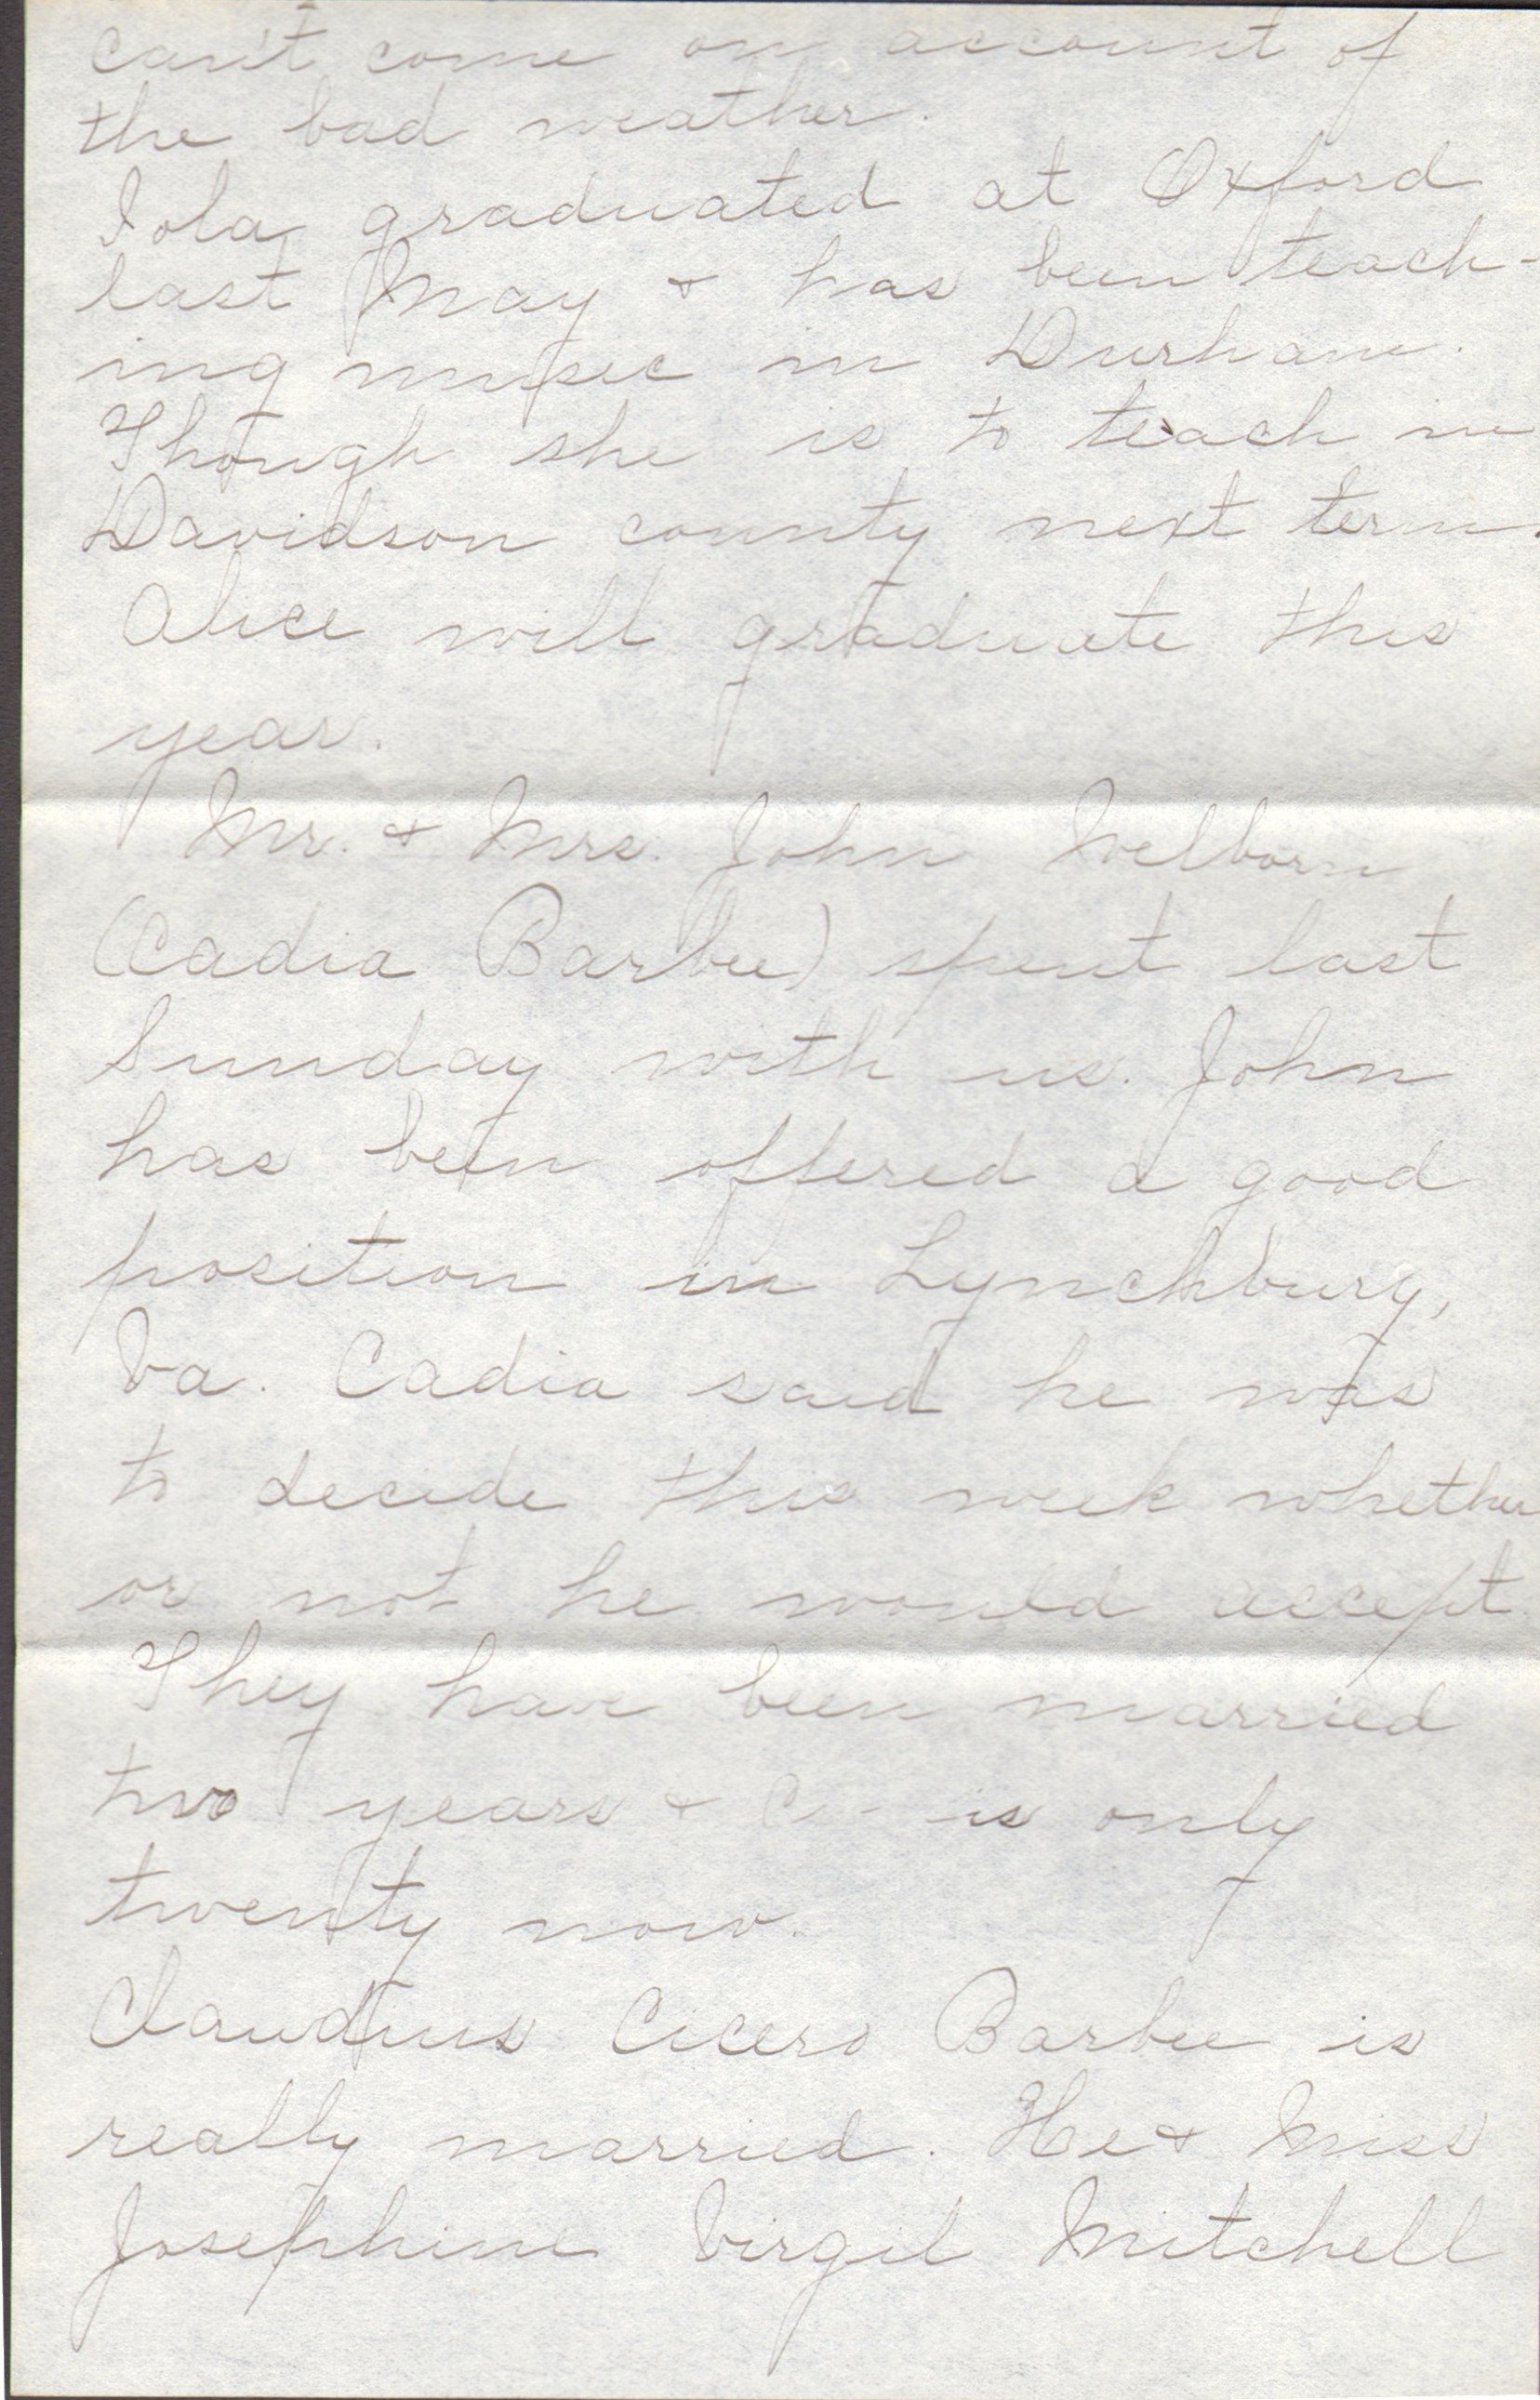 can't come on account of
the bad weather.
Iola graduated at Oxford
last May & has been teach-
ing music in Durham.
Though she is to teach in
Davidson county next term.
Alice will graduate this
year.
Mr. & Mrs. John Welborn
(Cadia Barbee) spent last
Sunday with us. John
has been offered a good
position in Lynchburg,
Va. Cadia said he was
to decide this week whether
or not he would accept
They have been married
two years & is only
twenty now.
Claudius Cicero Barbee is
really married. He & Miss
Josephine Virgil Mitchell